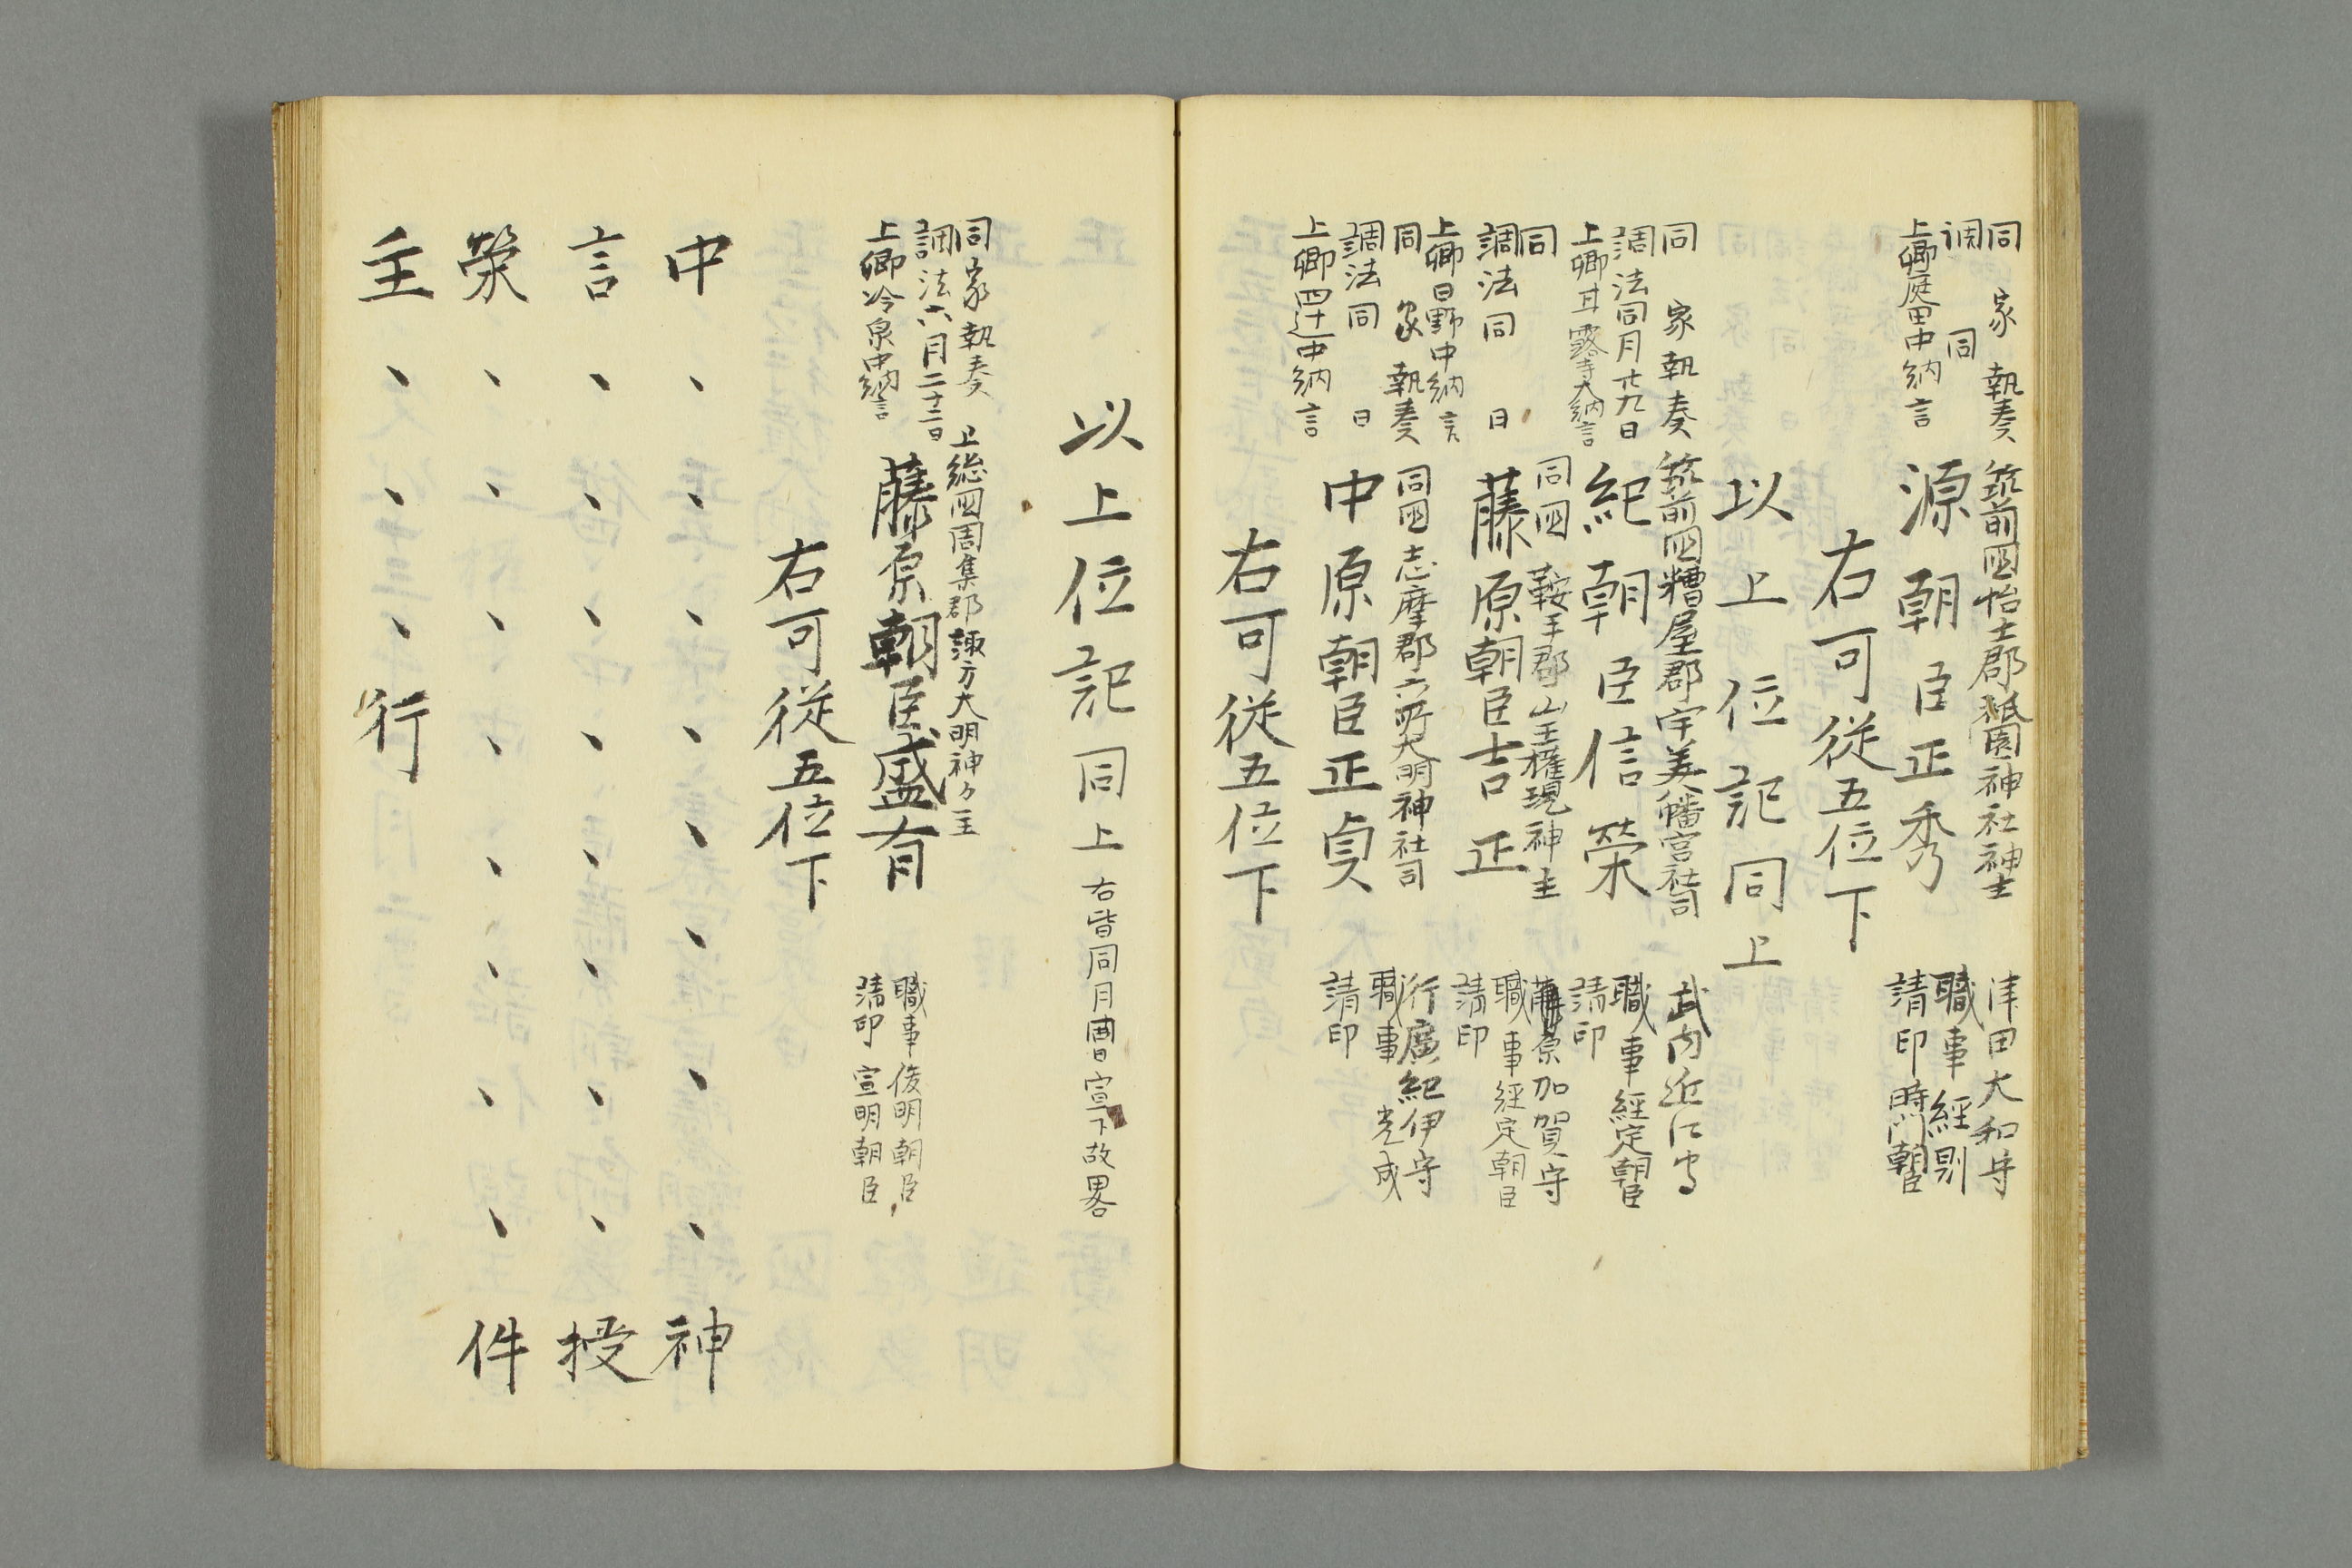 同家執奏 筑前国怡土郡祇園神社神主 津田大和守
調同 職事経則
上卿庭田中納言 源朝臣正秀 請印時門朝臣
右可従五位下
以上位記同上
同家執奏 筑前国糟屋郡宇美八幡宮社司 武内近江守
調法同月廿九日 職事経定朝臣
上卿甘露寺大納言 紀朝臣信栄 請印
同 同国鞍手郡山王権現神主 藤原加賀守
調法同日 職事経定朝臣
上卿日野中納言 藤原朝臣吉正 請印
同家執奏 同国志摩郡六所大明神社司 行廣紀伊守
調法同日 職事光成
上卿四辻中納言 中原朝臣正貞 請印
右可従五位下
以上位記同上 右皆同月宣下故畧
同家執奏 上総国周集郡諏方大明神々主
調法六月二十二日 職事俊明朝臣
上卿冷泉中納言 藤原朝臣盛有 請印宣明朝臣
右可従五位下
中、、、、、、、、神
言、、、、、、、、授
栄、、、、、、、、件
主、、、行